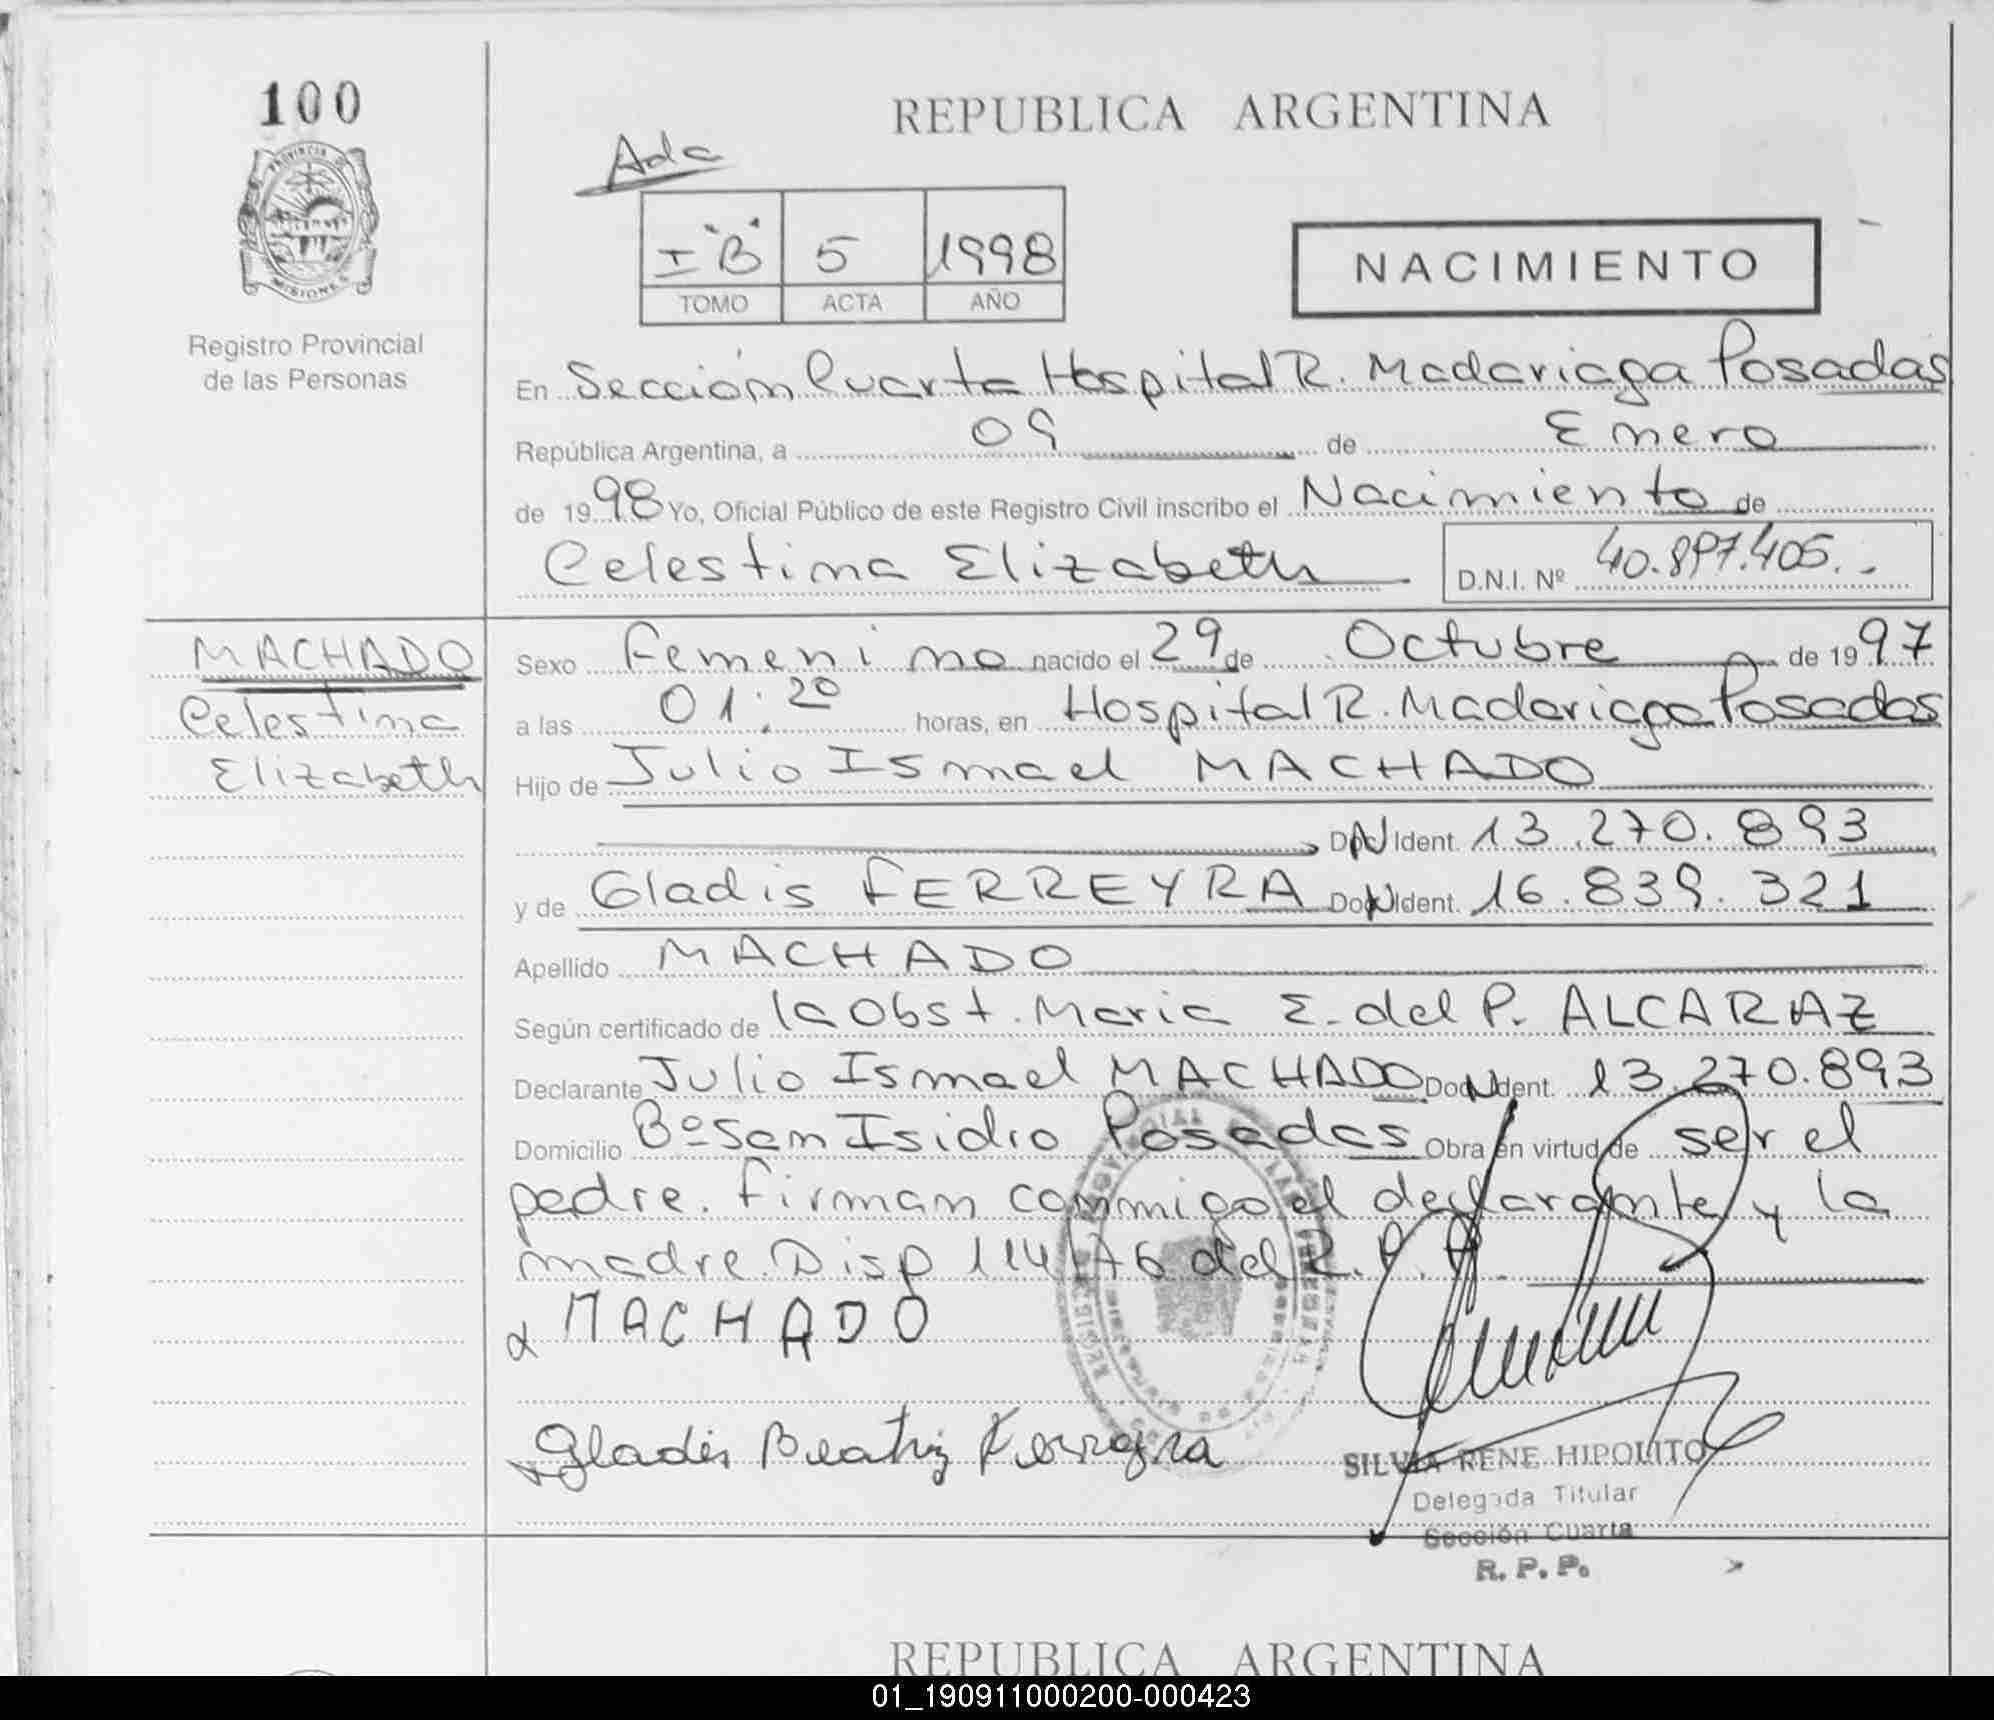 100
REPUBLICA ARGENTINA
Ada
I "B" 5 1998
TOMO ACTA AÑO
NACIMIENTO
PROVINCIA DE
MISIONES
Registro Provincial
de las Personas
En Sección Cuarta Hospital R. Madariaga Posadas
República Argentina, a 09 de Enero
de 1998 Yo, Oficial Público de este Registro Civil inscribo el Nacimiento de
Celestina Elizabeth D.N.I. Nº 40.897.405.-
MACHADO
Celestina
Elizabeth
Sexo Femenino nacido el 29 de Octubre de 1997
a las 01:20 horas, en Hospital R. Madariaga Posadas
Hijo de Julio Ismael MACHADO
Doc. Ident. 13.270.893
y de Gladis FERREYRA Doc. Ident. 16.839.321
Apellido MACHADO
Según certificado de la Obst. Maria E. del P. ALCARAZ
Declarante Julio Ismael MACHADO Doc. Ident. 13.270.893
Domicilio Bº San Isidro Posadas Obra en virtud de ser el
padre. Firman conmigo el declarante y la
madre. Disp 114/76 del R.P.P.
MACHADO
Gladis Beatriz Ferreyra
SILVIA RENE HIPOLITO
Delegada Titular
Sección Cuarta
R. P. P.
REPUBLICA ARGENTINA
01_190911000200-000423